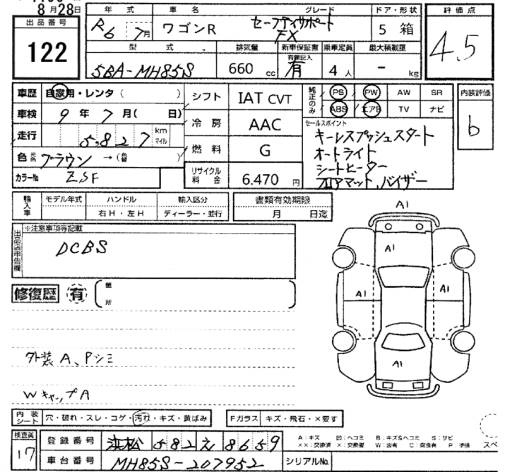 8月28日
出品番号
122
年式 車名 グレード ドア・形状 評価点
R6年7月 ワゴンR セーフティサポート
FX 5 箱 4.5
型式 排気量 新車保証書 乗車定員 最大積載量
5BA-MH85S 660cc 有 4人 - kg
車歴 自家用・レンタ シフト IAT CVT 純正のみ PS PW AW SR 内装評価
ABS エアB TV ナビ b
車検 9年7月( 日) 冷房 AAC セールスポイント
走行 5,827 km マイル キーレスプッシュスタート
オートライト
色 ブラウン→( ) 燃料 G シートヒーター
フロアマット、バイザー
カラーNo. ZSF リサイクル料金 6,470円
輸入車 モデル年式 ハンドル 輸入区分 書類有効期限
右H・左H ディーラー・並行 月 日迄
※注意事項等記載
DCBS
修復歴 有 箇所
外装A、Pシミ
WキャップA
A1
A1
A1
A1
A1
内装シート 穴・破れ・スレ・コゲ・汚れ・キズ・黄ばみ Fガラス キズ・飛石・×要す
検査員 17
登録番号 浜松 582 え 8659
車台番号 MH85S-207952 シリアルNo.
A:キズ